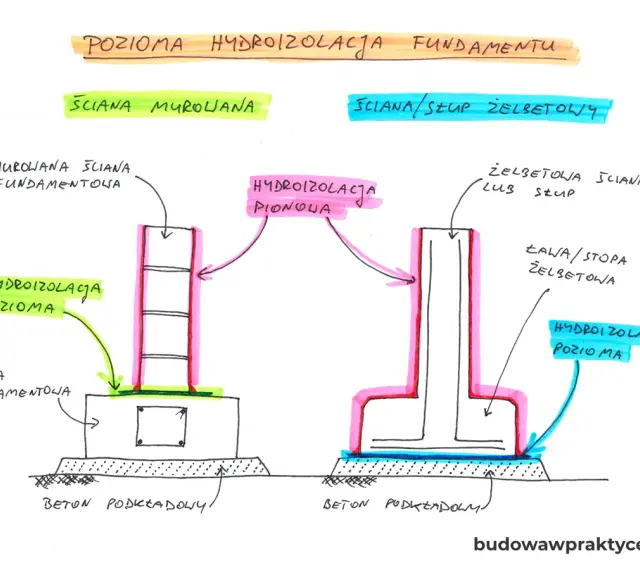 POZIOMA HYDROIZOLACJA FUNDAMENTU
ŚCIANA MUROWANA
ŚCIANA/SŁUP ŻELBETOWY
MUROWANA ŚCIANA
FUNDAMENTOWA
HYDROIZOLACJA
PIONOWA
ŻELBETOWA ŚCIANA
LUB SŁUP
ŁAWA/STOPA
ŻELBETOWA
HYDROIZOLACJA
POZIOMA
HYDROIZOL
POZIOMA
A
AMENTOWA
BETON PODKŁADOWY
BETON PODKŁADOWY
budowawpraktyce